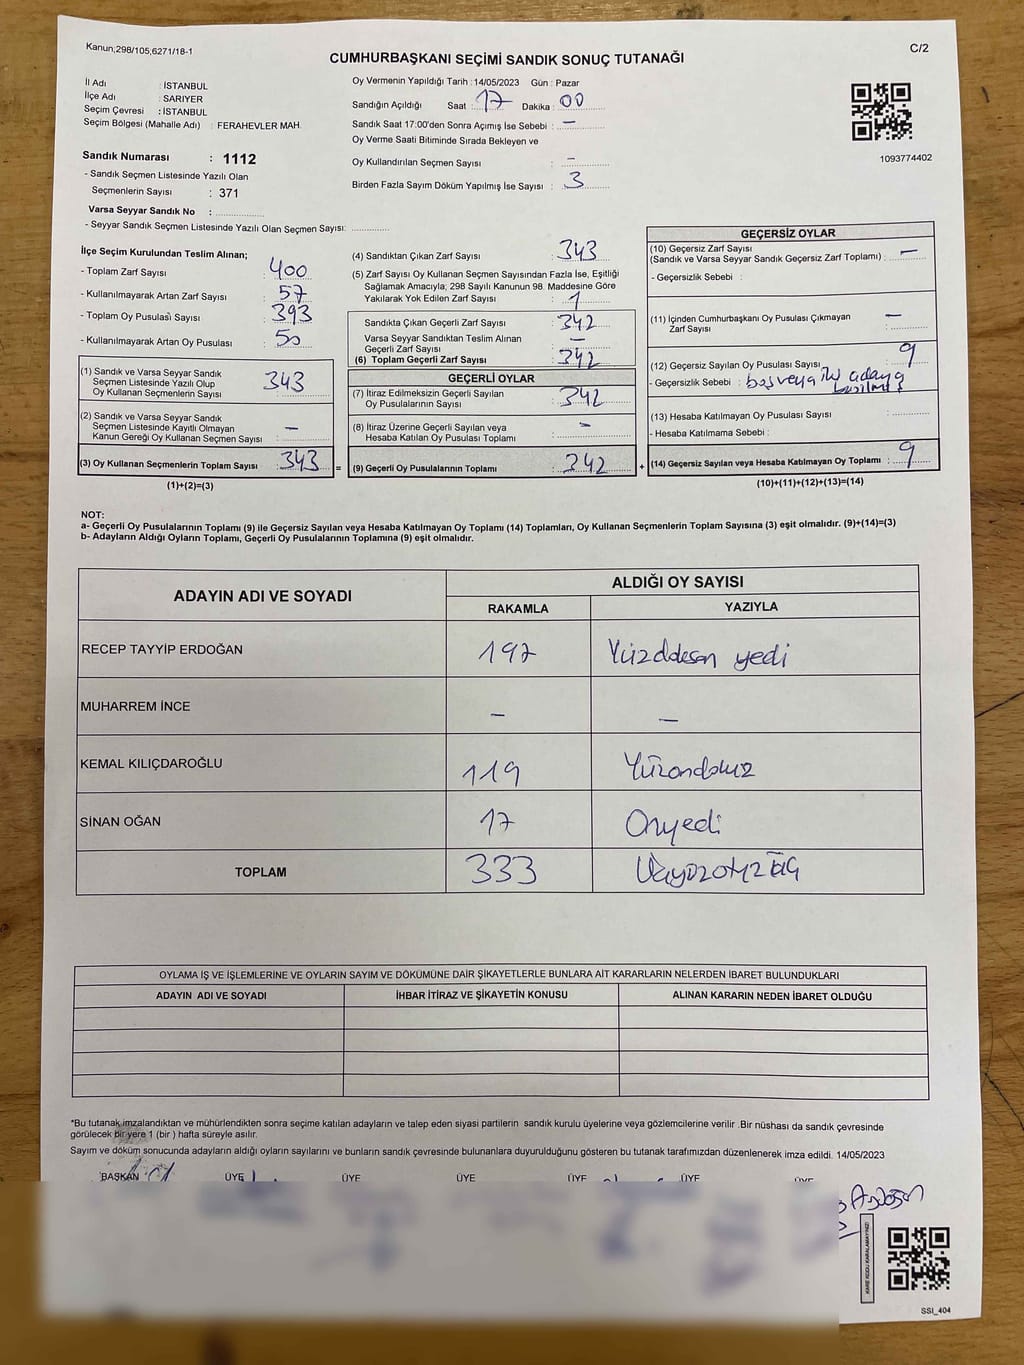 Kanun;298/105,6271/18-1
C/2
CUMHURBAŞKANI SEÇİMİ SANDIK SONUÇ TUTANAĞI
İl Adı : İSTANBUL
İlçe Adı : SARIYER
Seçim Çevresi : İSTANBUL
Seçim Bölgesi (Mahalle Adı) : FERAHEVLER MAH.
Sandık Numarası : 1112
- Sandık Seçmen Listesinde Yazılı Olan
Seçmenlerin Sayısı : 371
Varsa Seyyar Sandık No :
- Seyyar Sandık Seçmen Listesinde Yazılı Olan Seçmen Sayısı:
Oy Vermenin Yapıldığı Tarih : 14/05/2023 Gün : Pazar
Sandığın Açıldığı Saat : 17 Dakika : 00
Sandık Saat 17:00'den Sonra Açımış İse Sebebi : —
Oy Verme Saati Bitiminde Sırada Bekleyen ve
Oy Kullandırılan Seçmen Sayısı : —
Birden Fazla Sayım Döküm Yapılmış İse Sayısı : 3
1093774402
İlçe Seçim Kurulundan Teslim Alınan;
- Toplam Zarf Sayısı : 400
- Kullanılmayarak Artan Zarf Sayısı : 57
- Toplam Oy Pusulası Sayısı : 393
- Kullanılmayarak Artan Oy Pusulası : 50
(1) Sandık ve Varsa Seyyar Sandık
Seçmen Listesinde Yazılı Olup
Oy Kullanan Seçmenlerin Sayısı : 343
(2) Sandık ve Varsa Seyyar Sandık
Seçmen Listesinde Kayıtlı Olmayan
Kanun Gereği Oy Kullanan Seçmen Sayısı : —
(3) Oy Kullanan Seçmenlerin Toplam Sayısı : 343 =
(1)+(2)=(3)
(4) Sandıktan Çıkan Zarf Sayısı : 343
(5) Zarf Sayısı Oy Kullanan Seçmen Sayısından Fazla İse, Eşitliği
Sağlamak Amacıyla; 298 Sayılı Kanunun 98. Maddesine Göre
Yakılarak Yok Edilen Zarf Sayısı : 1
Sandıkta Çıkan Geçerli Zarf Sayısı : 342
Varsa Seyyar Sandıktan Teslim Alınan
Geçerli Zarf Sayısı : —
(6) Toplam Geçerli Zarf Sayısı : 342
GEÇERLİ OYLAR
(7) İtiraz Edilmeksizin Geçerli Sayılan
Oy Pusulalarının Sayısı : 342
(8) İtiraz Üzerine Geçerli Sayılan veya
Hesaba Katılan Oy Pusulası Toplamı : —
(9) Geçerli Oy Pusulalarının Toplamı : 342 +
GEÇERSİZ OYLAR
(10) Geçersiz Zarf Sayısı
(Sandık ve Varsa Seyyar Sandık Geçersiz Zarf Toplamı) : —
- Geçersizlik Sebebi :
(11) İçinden Cumhurbaşkanı Oy Pusulası Çıkmayan
Zarf Sayısı : —
(12) Geçersiz Sayılan Oy Pusulası Sayısı : 9
- Geçersizlik Sebebi : boş veya iki adaya
(13) Hesaba Katılmayan Oy Pusulası Sayısı :
- Hesaba Katılmama Sebebi :
(14) Geçersiz Sayılan veya Hesaba Katılmayan Oy Toplamı : 9
(10)+(11)+(12)+(13)=(14)
NOT:
a- Geçerli Oy Pusulalarının Toplamı (9) ile Geçersiz Sayılan veya Hesaba Katılmayan Oy Toplamı (14) Toplamları, Oy Kullanan Seçmenlerin Toplam Sayısına (3) eşit olmalıdır. (9)+(14)=(3)
b- Adayların Aldığı Oyların Toplamı, Geçerli Oy Pusulalarının Toplamına (9) eşit olmalıdır.
ADAYIN ADI VE SOYADI
ALDIĞI OY SAYISI
RAKAMLA YAZIYLA
RECEP TAYYİP ERDOĞAN 197 Yüzdoksan yedi
MUHARREM İNCE — —
KEMAL KILIÇDAROĞLU 119 Yüzondokuz
SİNAN OĞAN 17 Onyedi
TOPLAM 333 Üçyüzotuzüç
OYLAMA İŞ VE İŞLEMLERİNE VE OYLARIN SAYIM VE DÖKÜMÜNE DAİR ŞİKAYETLERLE BUNLARA AİT KARARLARIN NELERDEN İBARET BULUNDUKLARI
ADAYIN ADI VE SOYADI İHBAR İTİRAZ VE ŞİKAYETİN KONUSU ALINAN KARARIN NEDEN İBARET OLDUĞU
*Bu tutanak imzalandıktan ve mühürlendikten sonra seçime katılan adayların ve talep eden siyasi partilerin sandık kurulu üyelerine veya gözlemcilerine verilir .Bir nüshası da sandık çevresinde
görülecek bir yere 1 (bir ) hafta süreyle asılır.
Sayım ve döküm sonucunda adayların aldığı oyların sayılarını ve bunların sandık çevresinde bulunanlara duyurulduğunu gösteren bu tutanak tarafımızdan düzenlenerek imza edildi. 14/05/2023
BAŞKAN ÜYE ÜYE ÜYE ÜYE ÜYE ÜYE
KARE KODU KARALAMAYINIZ!
SSI_404